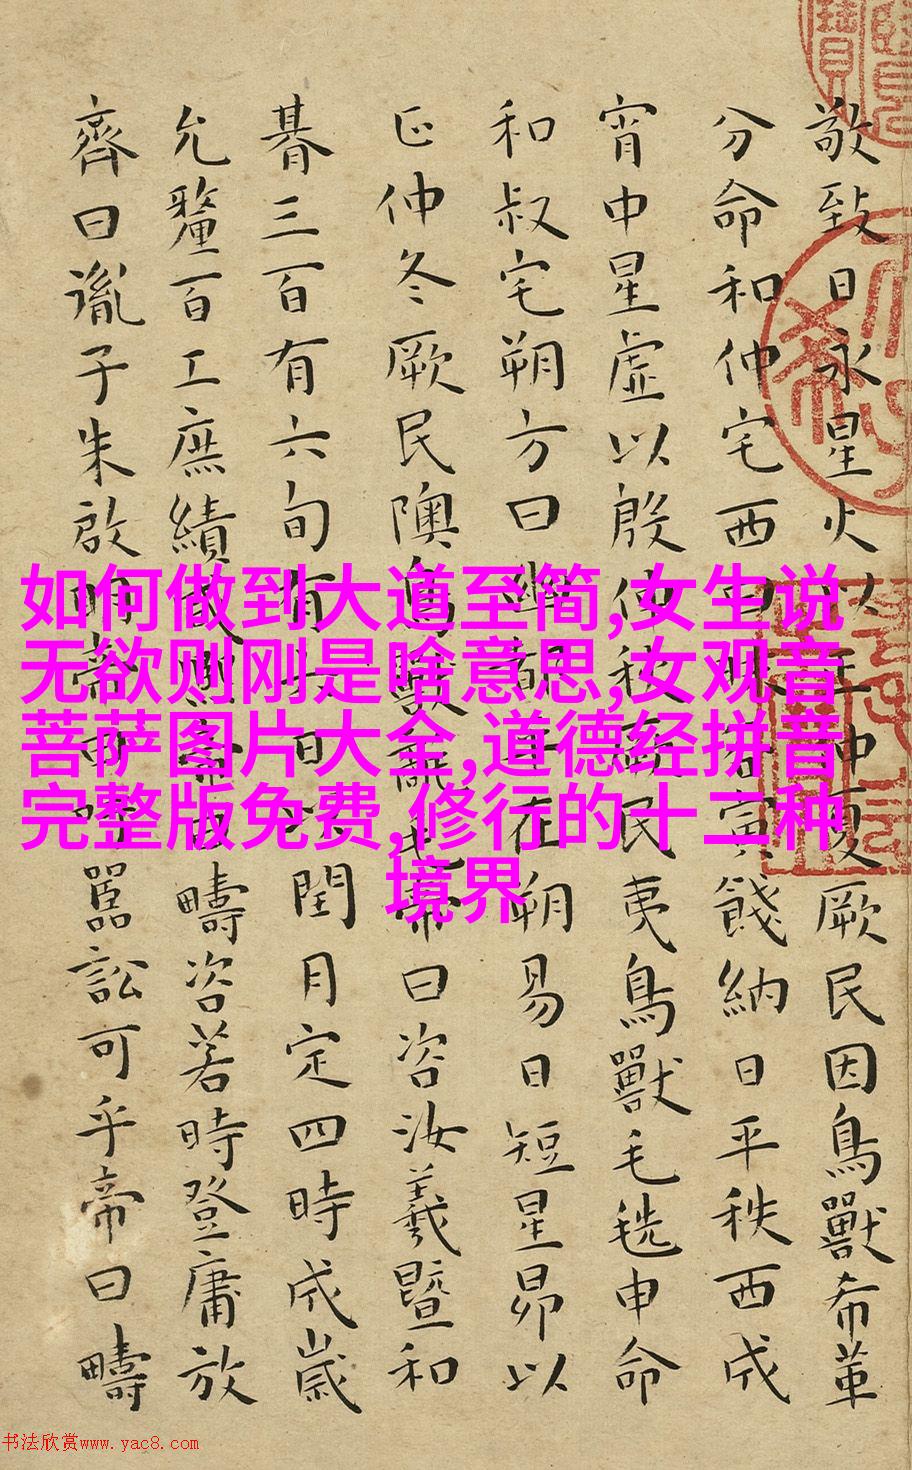 敬致日永星火以正仲夏厥民因鳥獸希革
分命和仲宅西曰昧谷寅餞納日平秩西成
宵中星虛以殷仲秋厥民夷鳥獸毛毨申命
和叔宅朔方曰幽都平在朔易日短星昴以
正仲冬厥民隩鳥獸氄毛帝曰咨汝羲暨和
朞三百有六旬有六日以閏月定四時成歲
允釐百工庶績咸熙帝曰疇咨若時登庸放
齊曰胤子朱啟明帝曰吁嚚訟可乎帝曰疇
如何做到大道至简,女生说
无欲则刚是啥意思,女观音
菩萨图片大全,道德经拼音
完整版免费,修行的十二种
境界
书法欣赏www.yac8.com